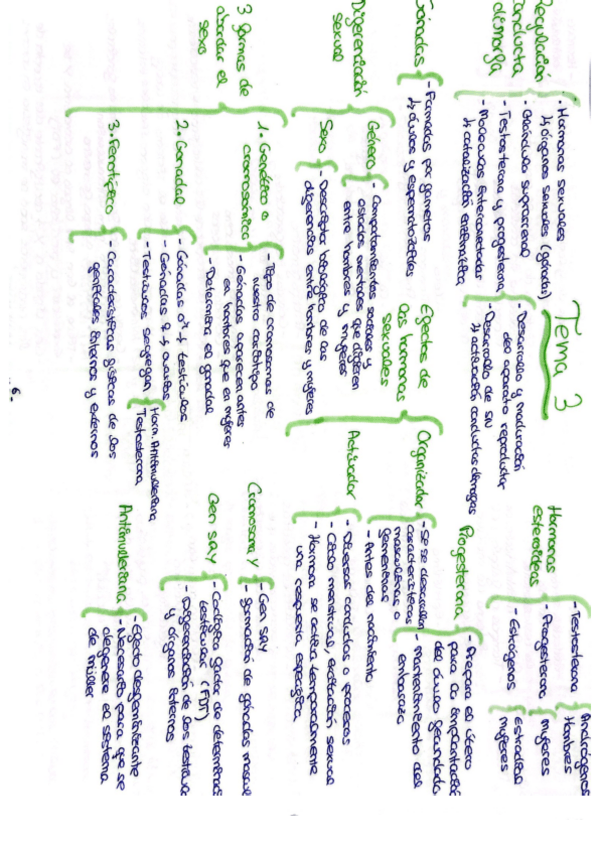 Tema 3
Regulación
conducta
dismorfa
- Hormonas sexuales
↳ órganos sexuales (gónada)
- Glándula suprarrenal
- Testosterona y progesterona
- Moléculas interconectadas
↳ catalización enzimática
- Desarrollo y maduración
del aparato reproductor
- Desarrollo de SN
↳ activación conductas
Hormonas
esteroideas
- Testosterona
- Progesterona
- Estrógenos
Andrógenos
Hombres
mujeres
Estradiol
mujeres
Gónadas
- Formadas por gametos
↳ óvulos y espermatozoides
Progesterona
- Prepara el útero
para la implantación
del óvulo fecundado
- Mantenimiento del
embarazo
Diferenciación
sexual
Género
- Comportamientos sociales y
estados mentales que difieren
entre hombres y mujeres
Sexo
- Descriptor biológico de las
diferencias entre hombres y mujeres
Efectos de
las hormonas
sexuales
Organizador
- Se desarrollan
características
masculinas o
femeninas
- Antes del nacimiento
Activador
- Diversas conductas o procesos
- Ciclo menstrual, excitación sexual
- Hormona se activa temporalmente
una respuesta específica
3 formas de
abordar el
sexo
1. Genético o
cromosómico
- Tipo de cromosomas de
nuestro cariotipo
- Gónadas aparecen antes
en hombres que en mujeres
- Determina el gonadal
2. Gonadal
- Gónadas ♂ → testículos
- Gónadas ♀ → ovarios
- Testículos segregan
Horm. Antimulleriana
Testosterona
3. Fenotípico
- Características físicas de los
genitales internos y externos
Cromosoma Y
- Gen SRY
- Formación de gónadas mascul
Gen SRY
- Codifica factor de determinac
testicular (FDT)
- Diferenciación de los testículo
y órganos internos
Antimulleriana
- Efecto desfeminizante
- Necesario para que se
degenere el sistema
de Müller